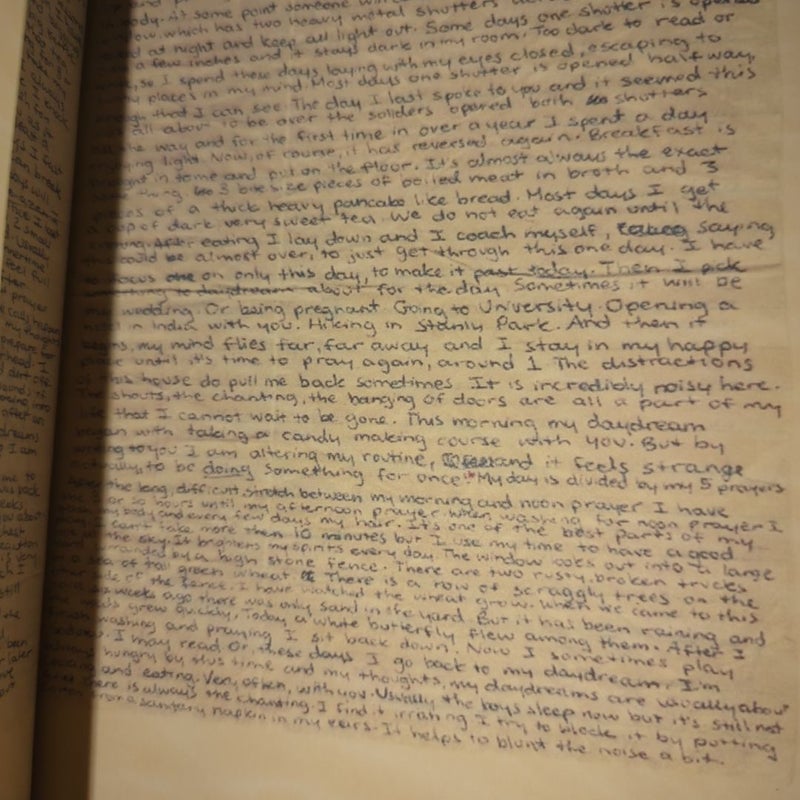 body. At some point someone
which has two heavy metal shutters
at night and keep all light out. Some days one shutter is opened
a few inches and it stays dark in my room. Too dark to read or
so I spend these days laying with my eyes closed, escaping to
places in my mind. Most days one shutter is opened half way,
that I can see. The day I last spoke to you and it seemed this
all about to be over the soliders opened both shutters
the way and for the first time in over a year I spent a day
light. Now, of course, it has reversed again. Breakfast is
in to me and put on the floor. It's almost always the exact
thing 3 bite size pieces of boiled meat in broth and 3
pieces of a thick heavy pancake like bread. Most days I get
a cup of dark very sweet tea. We do not eat again until the
evening. After eating I lay down and I coach myself, saying
this could be almost over, to just get through this one day. I have
to focus one on only this day, to make it past today. Then I pick
something to daydream about for the day. Sometimes it will be
my wedding. Or being pregnant. Going to University. Opening a
in India with you. Hiking in Stanly Park. And then it
begins, my mind flies far, far away and I stay in my happy
place until it's time to pray again, around 1. The distractions
of this house do pull me back sometimes. It is incredibly noisy here.
The shouts, the chanting, the banging of doors are all a part of my
life that I cannot wait to be gone. This morning my daydream
began with taking a candy making course with you. But by
writing to you I am altering my routine, and it feels strange
actually, to be doing something for once. My day is divided by my 5 prayers
After the long, difficult stretch between my morning and noon prayer I have
or so hours until my afternoon prayer. When washing for noon prayer I
my body and every few days my hair. It's one of the best parts of my
I can't take more then 10 minutes but I use my time to have a good
the sky. It brightens my spirits every day. The window looks out into a large
surrounded by a high stone fence. There are two rusty, broken trucks
a sea of tall green wheat. There is a row of scraggly trees on the
side of the fence. I have watched the wheat grow. When we came to this
weeks ago there was only sand in the yard. But it has been raining and
grew quickly. Today a white butterfly flew among them. After I
washing and praying I sit back down. Now I sometimes play
I may read. Or, these days I go back to my daydream. I'm
hungry by this time and my thoughts, my daydreams are usually about
and eating. Very often, with you. Usually the boys sleep now but it's still not
there is always the chanting. I find it irrating I try to block it by putting
from a sanitary napkin in my ears. It helps to blunt the noise a bit.